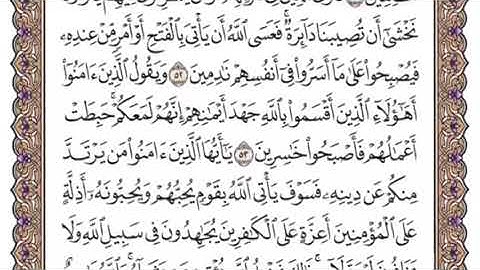 نَخْشَىٰٓ أَن تُصِيبَنَا دَآئِرَةٌ ۚ فَعَسَى ٱللَّهُ أَن يَأْتِىَ بِٱلْفَتْحِ أَوْ أَمْرٍ مِّنْ عِندِهِۦ
فَيُصْبِحُوا۟ عَلَىٰ مَآ أَسَرُّوا۟ فِىٓ أَنفُسِهِمْ نَـٰدِمِينَ ٥٢ وَيَقُولُ ٱلَّذِينَ ءَامَنُوٓا۟
أَهَـٰٓؤُلَآءِ ٱلَّذِينَ أَقْسَمُوا۟ بِٱللَّهِ جَهْدَ أَيْمَـٰنِهِمْ ۙ إِنَّهُمْ لَمَعَكُمْ ۚ حَبِطَتْ
أَعْمَـٰلُهُمْ فَأَصْبَحُوا۟ خَـٰسِرِينَ ٥٣ يَـٰٓأَيُّهَا ٱلَّذِينَ ءَامَنُوا۟ مَن يَرْتَدَّ
مِنكُمْ عَن دِينِهِۦ فَسَوْفَ يَأْتِى ٱللَّهُ بِقَوْمٍ يُحِبُّهُمْ وَيُحِبُّونَهُۥٓ أَذِلَّةٍ
عَلَى ٱلْمُؤْمِنِينَ أَعِزَّةٍ عَلَى ٱلْكَـٰفِرِينَ يُجَـٰهِدُونَ فِى سَبِيلِ ٱللَّهِ وَلَا